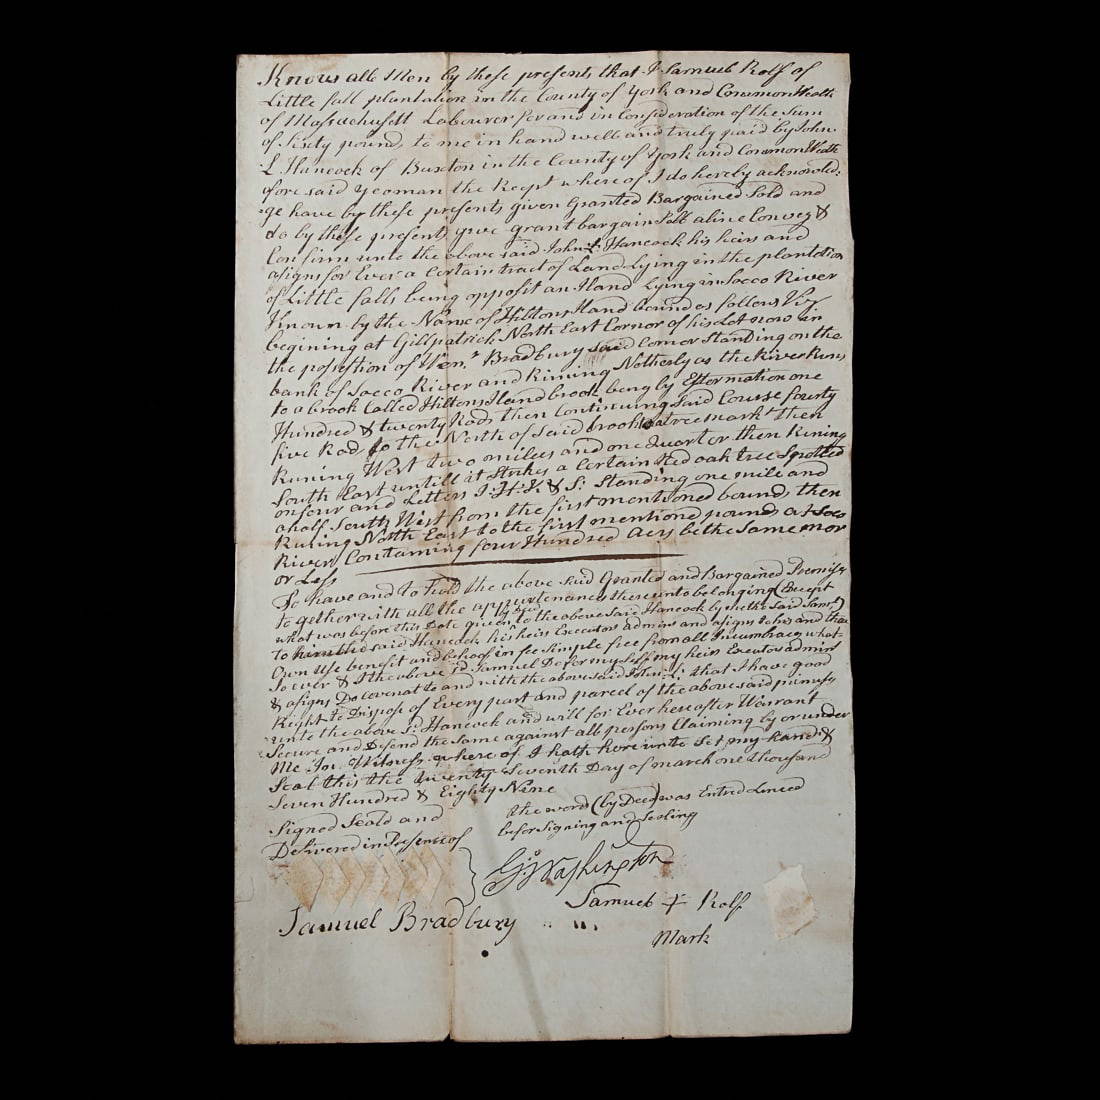 Know all Men by these presents, that I Samuel Rolf of
Little fall plantation in the County of York and Common Wealth
of Massachusett Labourer for and in Consideration of the Sum
of Sixty pound, to me in hand well and truly paid by John
L Hancock of Buxton in the County of York and Common Wealth
afore said yeoman the Recpt where of I do hereby acknowled-
ge have by these presents given Granted Bargained Sold and
do by these presents give grant bargain Sell aline Convey &
Confirm unto the above said John L: Hancock his heirs and
asigns for Ever a Certain tract of Land Lying in the plantation
of Little falls being opposit an Iland Lying in Socco River
Known by the Name of Hiltons Iland bounded as follows Viz
begining at Gillpatrick North East Cornor of his Lot now in
the possestion of Wm. Bradbury said Cornor Standing on the
bank of Socco River and Runing Notherly as the River Runs
to a brook Called Hiltons Iland brook being by Estermation one
Hundred & twenty Rods then Continuing said Course fourty
five Rod to the North of said brook to a tree mark then
Runing West two miles and one Quarter then Runing
South East untill it Strikes a Certain Red oak tree Spotted
on four and Letters I: H: K & S: Standing one mile and
a half South West from the first mentioned bound, then
Runing North East to the first mentioned pound, at Soco
River Contaming four Hundred Acrs be the Same mor
or Less
To have and to hold the above said Granted and Bargained Premises
to gether with all the appurtenances there unto belonging (Except
what was before this Date given by Deed to the above said Hancock by me the said Saml.)
to him the said Hancock his heirs Executors admrs and asigns to his and their
Own Use benefit and behoof in fee simple free from all Incumbraces what-
So ever & I the above sd. Samuel Do for my Self my heirs Executors admirs
& asigns Do covenat to and with the above said John L: that I have good
Right to Dispose of Every part and parcel of the above said primises
unto the above sd. Hancock and will for Ever here after Warrant
Secure and Defend the Same against all persons Claiming by or under
Me In Witness where of I hath here unto Set my hand &
Seal this the twenty Seventh Day of march one thousand
Seven Hundred & Eighty Nine
the word (by Deed) was Entred Lineed
befor Signing and Sealing
Signed Seald and
Delivered in Presence of
Go. Washington
Samuel + Rolf
Mark
Samuel Bradbury